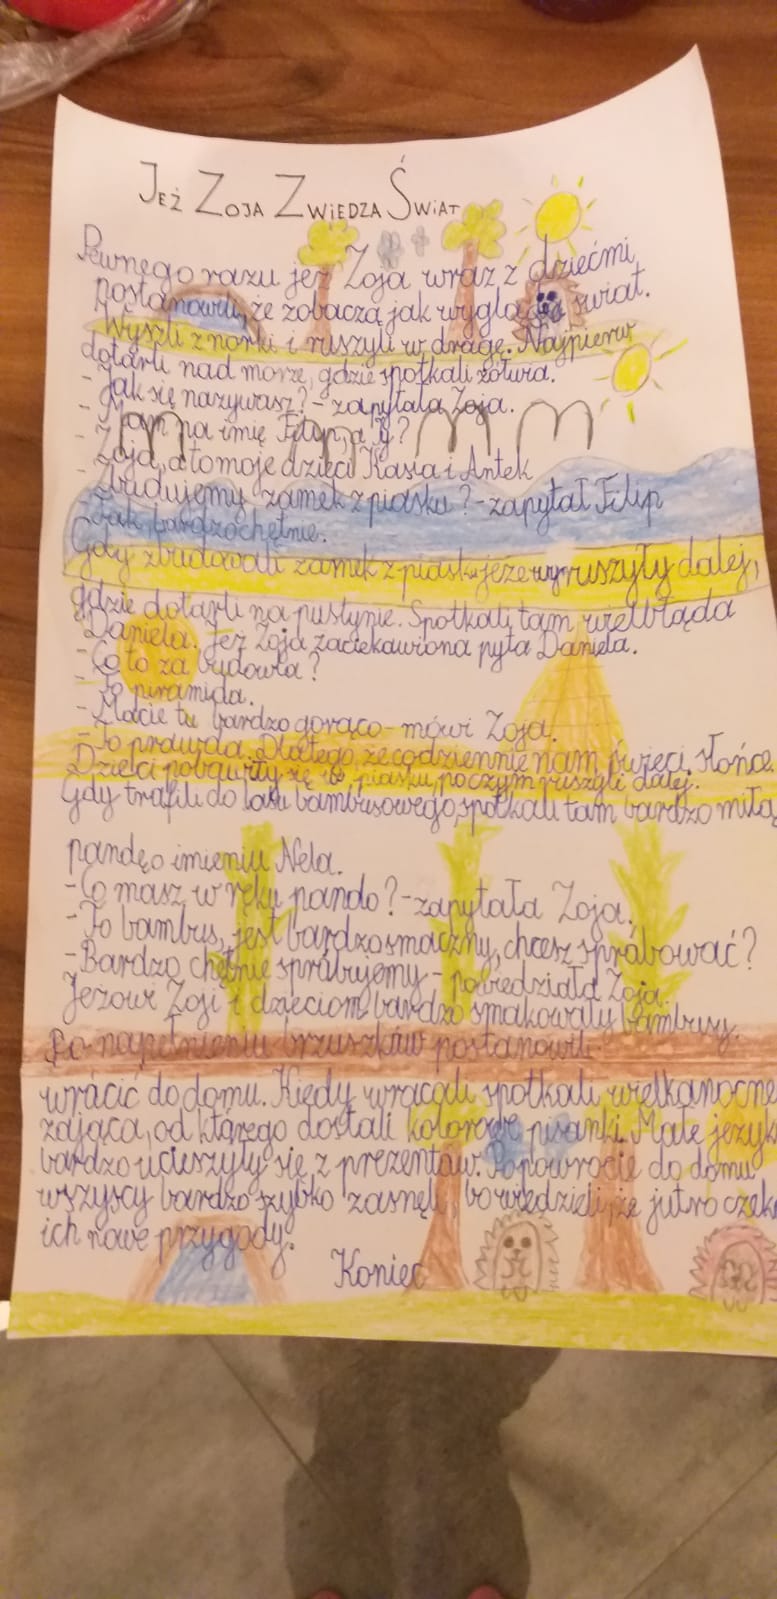 Jeż Zoja Zwiedza Świat
Pewnego razu jeż Zoja wraz z dziećmi
postanowili, że zobaczą jak wygląda świat.
Wyszli z norki i ruszyli w drogę. Najpierw
dotarli nad morze, gdzie spotkali żółwia.
- Jak się nazywasz? - zapytała Zoja.
- Mam na imię Filip, a ty?
- Zoja, a to moje dzieci Kasia i Antek
- Zbudujemy zamek z piasku? - zapytał Filip
- Tak bardzo chętnie.
Gdy zbudowali zamek z piasku jeże wyruszyły dalej,
gdzie dotarli na pustynie. Spotkali tam wielbłąda
Daniela. Jeż Zoja zaciekawiona pyta Daniela.
- Co to za budowla?
- To piramida.
- Macie tu bardzo gorąco - mówi Zoja.
- To prawda. Dlatego, że codziennie nam świeci słońce.
Dzieci pobawiły się w piasku, poczym ruszyli dalej.
Gdy trafili do lasu bambusowego, spotkali tam bardzo miłą
pandę o imieniu Nela.
- Co masz w ręku pando? - zapytała Zoja.
- To bambus, jest bardzo smaczny, chcesz spróbować?
- Bardzo chętnie spróbujemy - powiedziała Zoja.
Jeżowi Zoji i dzieciom bardzo smakowały bambusy.
Po napełnieniu brzuszków postanowili
wrócić do domu. Kiedy wracali spotkali wielkanocne
zająca, od którego dostali kolorowe pisanki. Małe jeżyk
bardzo ucieszyły się z prezentów. Po powrocie do domu
wszyscy bardzo szybko zasnęli, bo wiedzieli, że jutro czeka
ich nowe przygody.
Koniec